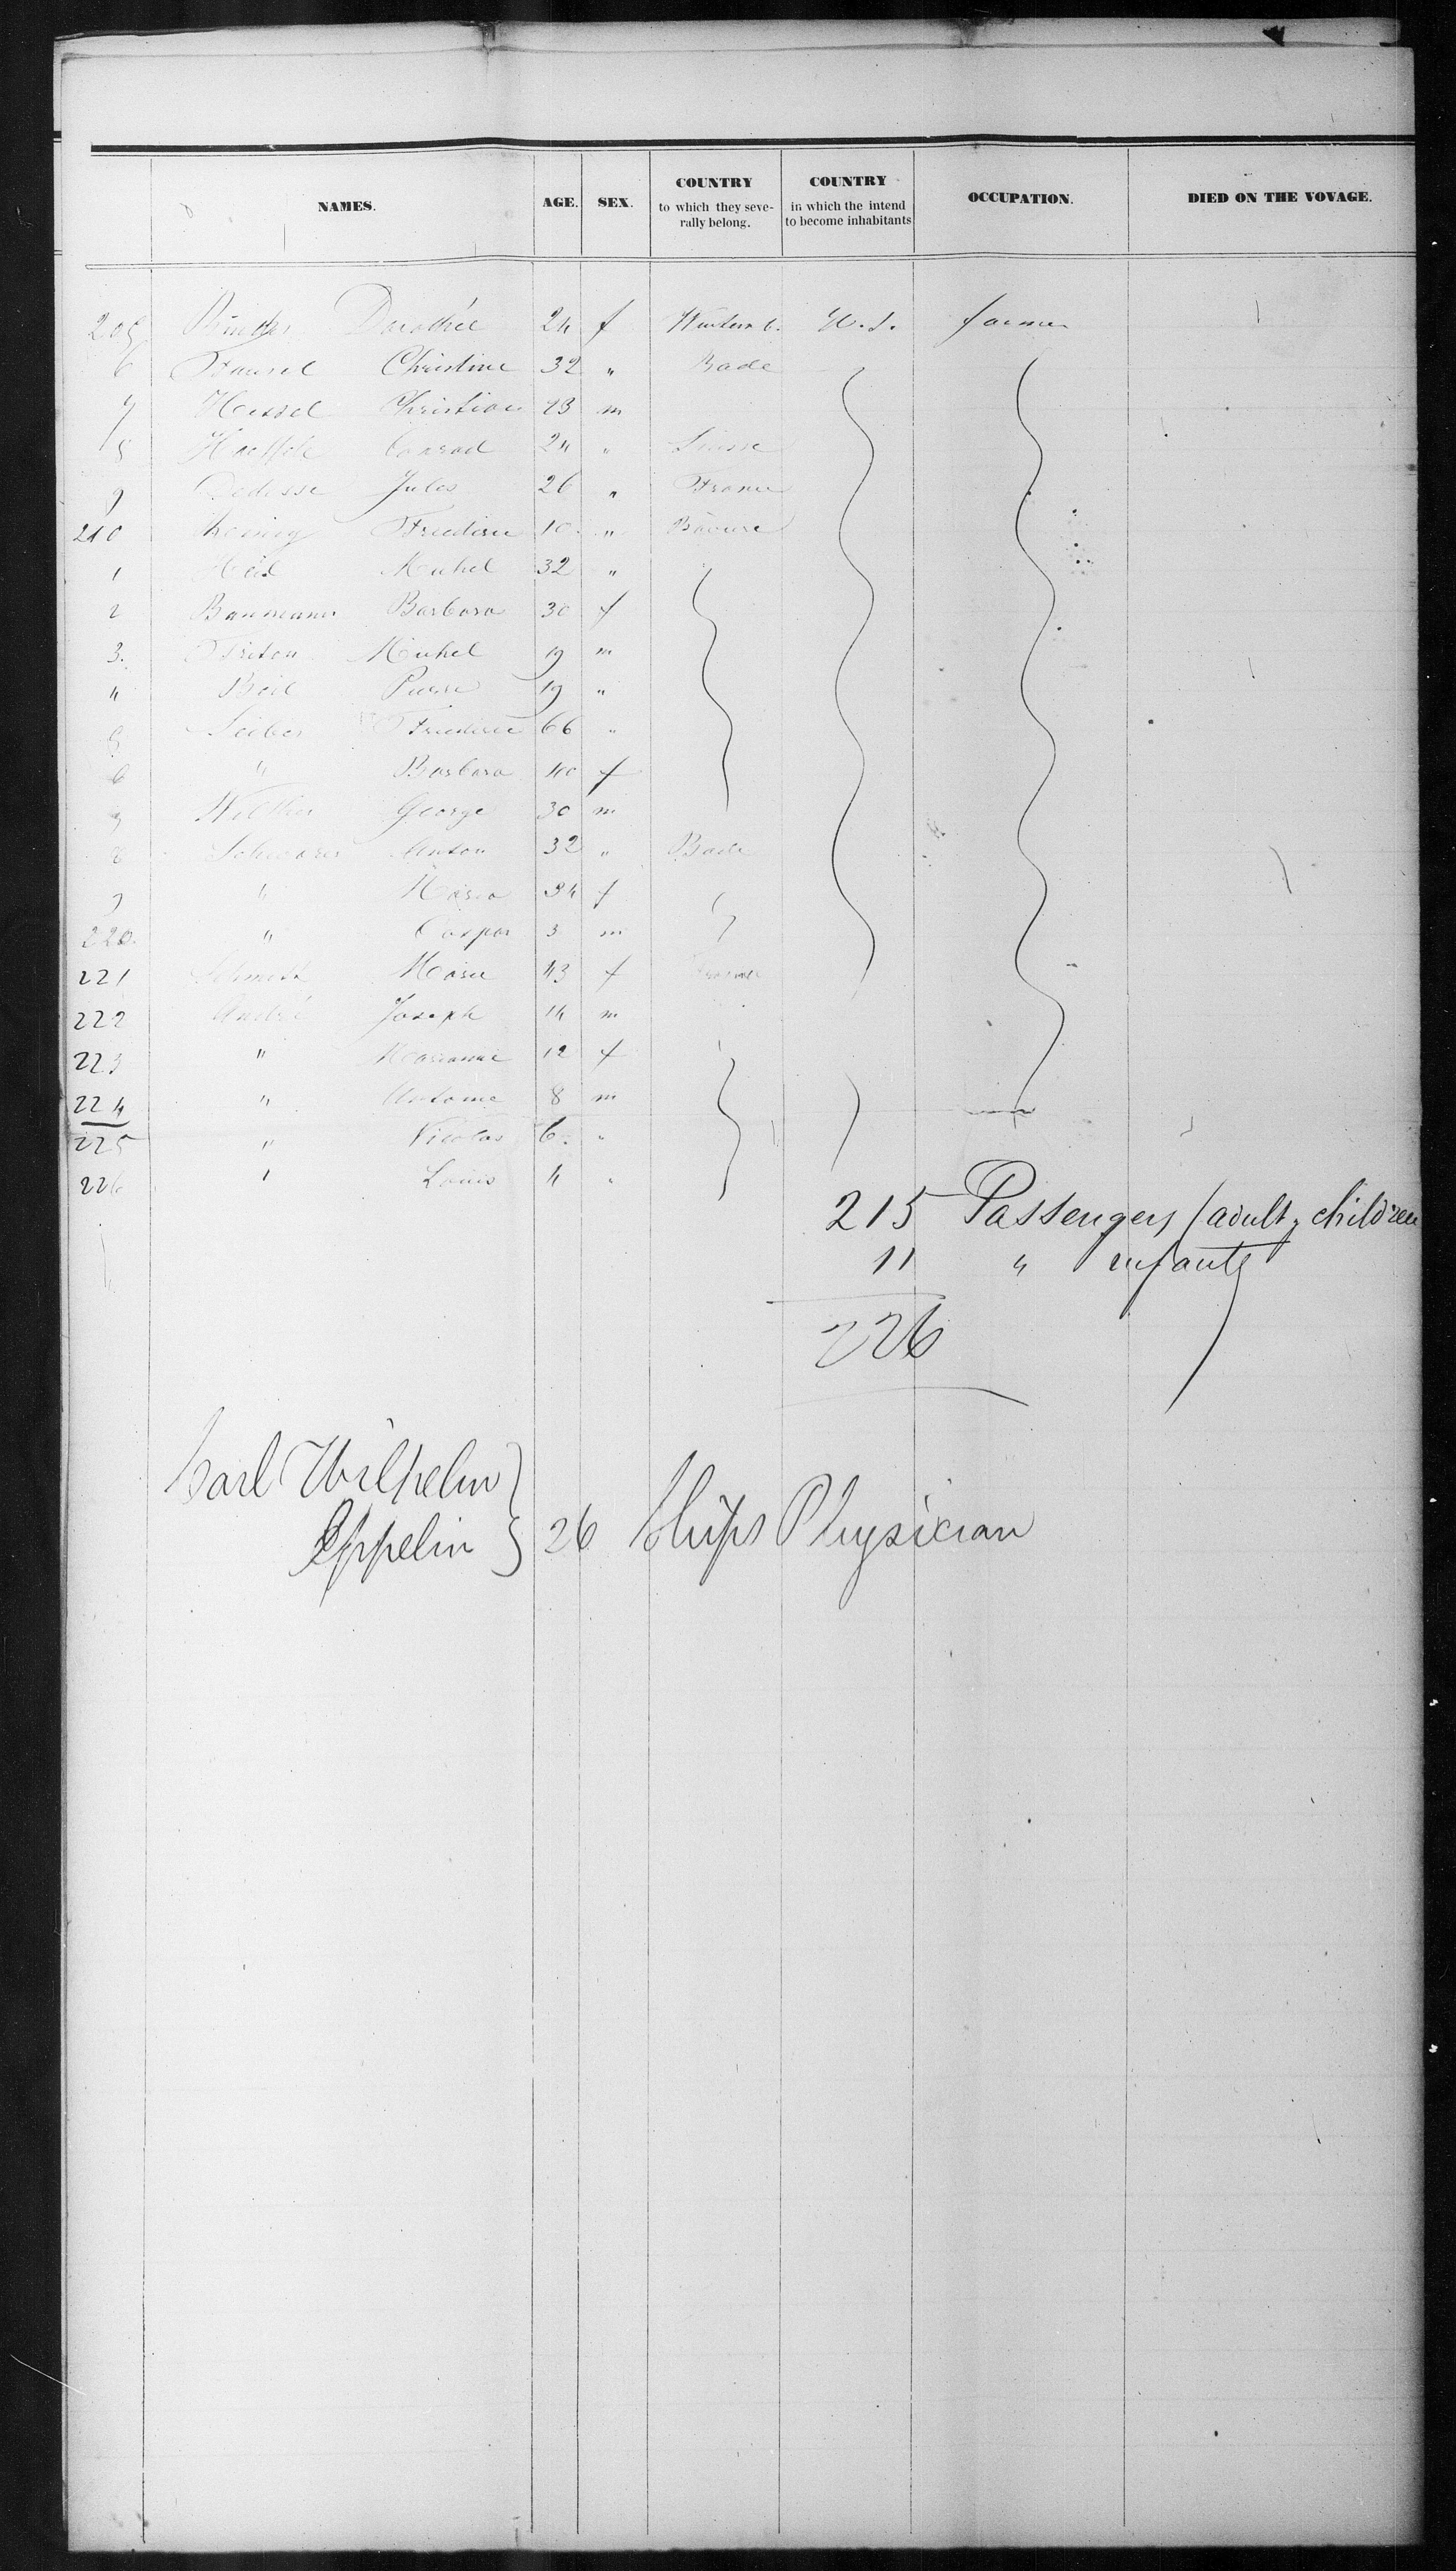 NAMES. AGE. SEX. COUNTRY to which they seve-rally belong. COUNTRY in which the intend to become inhabitants OCCUPATION. DIED ON THE VOYAGE.
205 Binder Dorothée 24 f Wurtemb. U.S. farmer
6 Christine 32 " Bade
7 Hessel Christian 23 m
8 Conrad 24 " Suisse
9 Jules 26 " France
210 Koenig Frederic 10 " Baviere
1 Michel 32 "
2 Baumann Barbara 30 f
3. Michel 19 m
4 Beil Pierre 19 "
5 Leiber Frederic 66 "
6 " Barbara 40 f
7 Walther George 30 m
8 Anton 32 " Bade
9 " Maria 34 f
220. " Caspar 3 m
221 Schmitt Marie 43 f France
222 André Joseph 14 m
223 " Marianne 12 f
224 " Antoine 8 m
225 " Nicolas 6. "
226 " Louis 4 "
215 Passengers (adult, children
11 " infants)
226
Carl Wilhelm
Eppelin } 26 Ships Physician